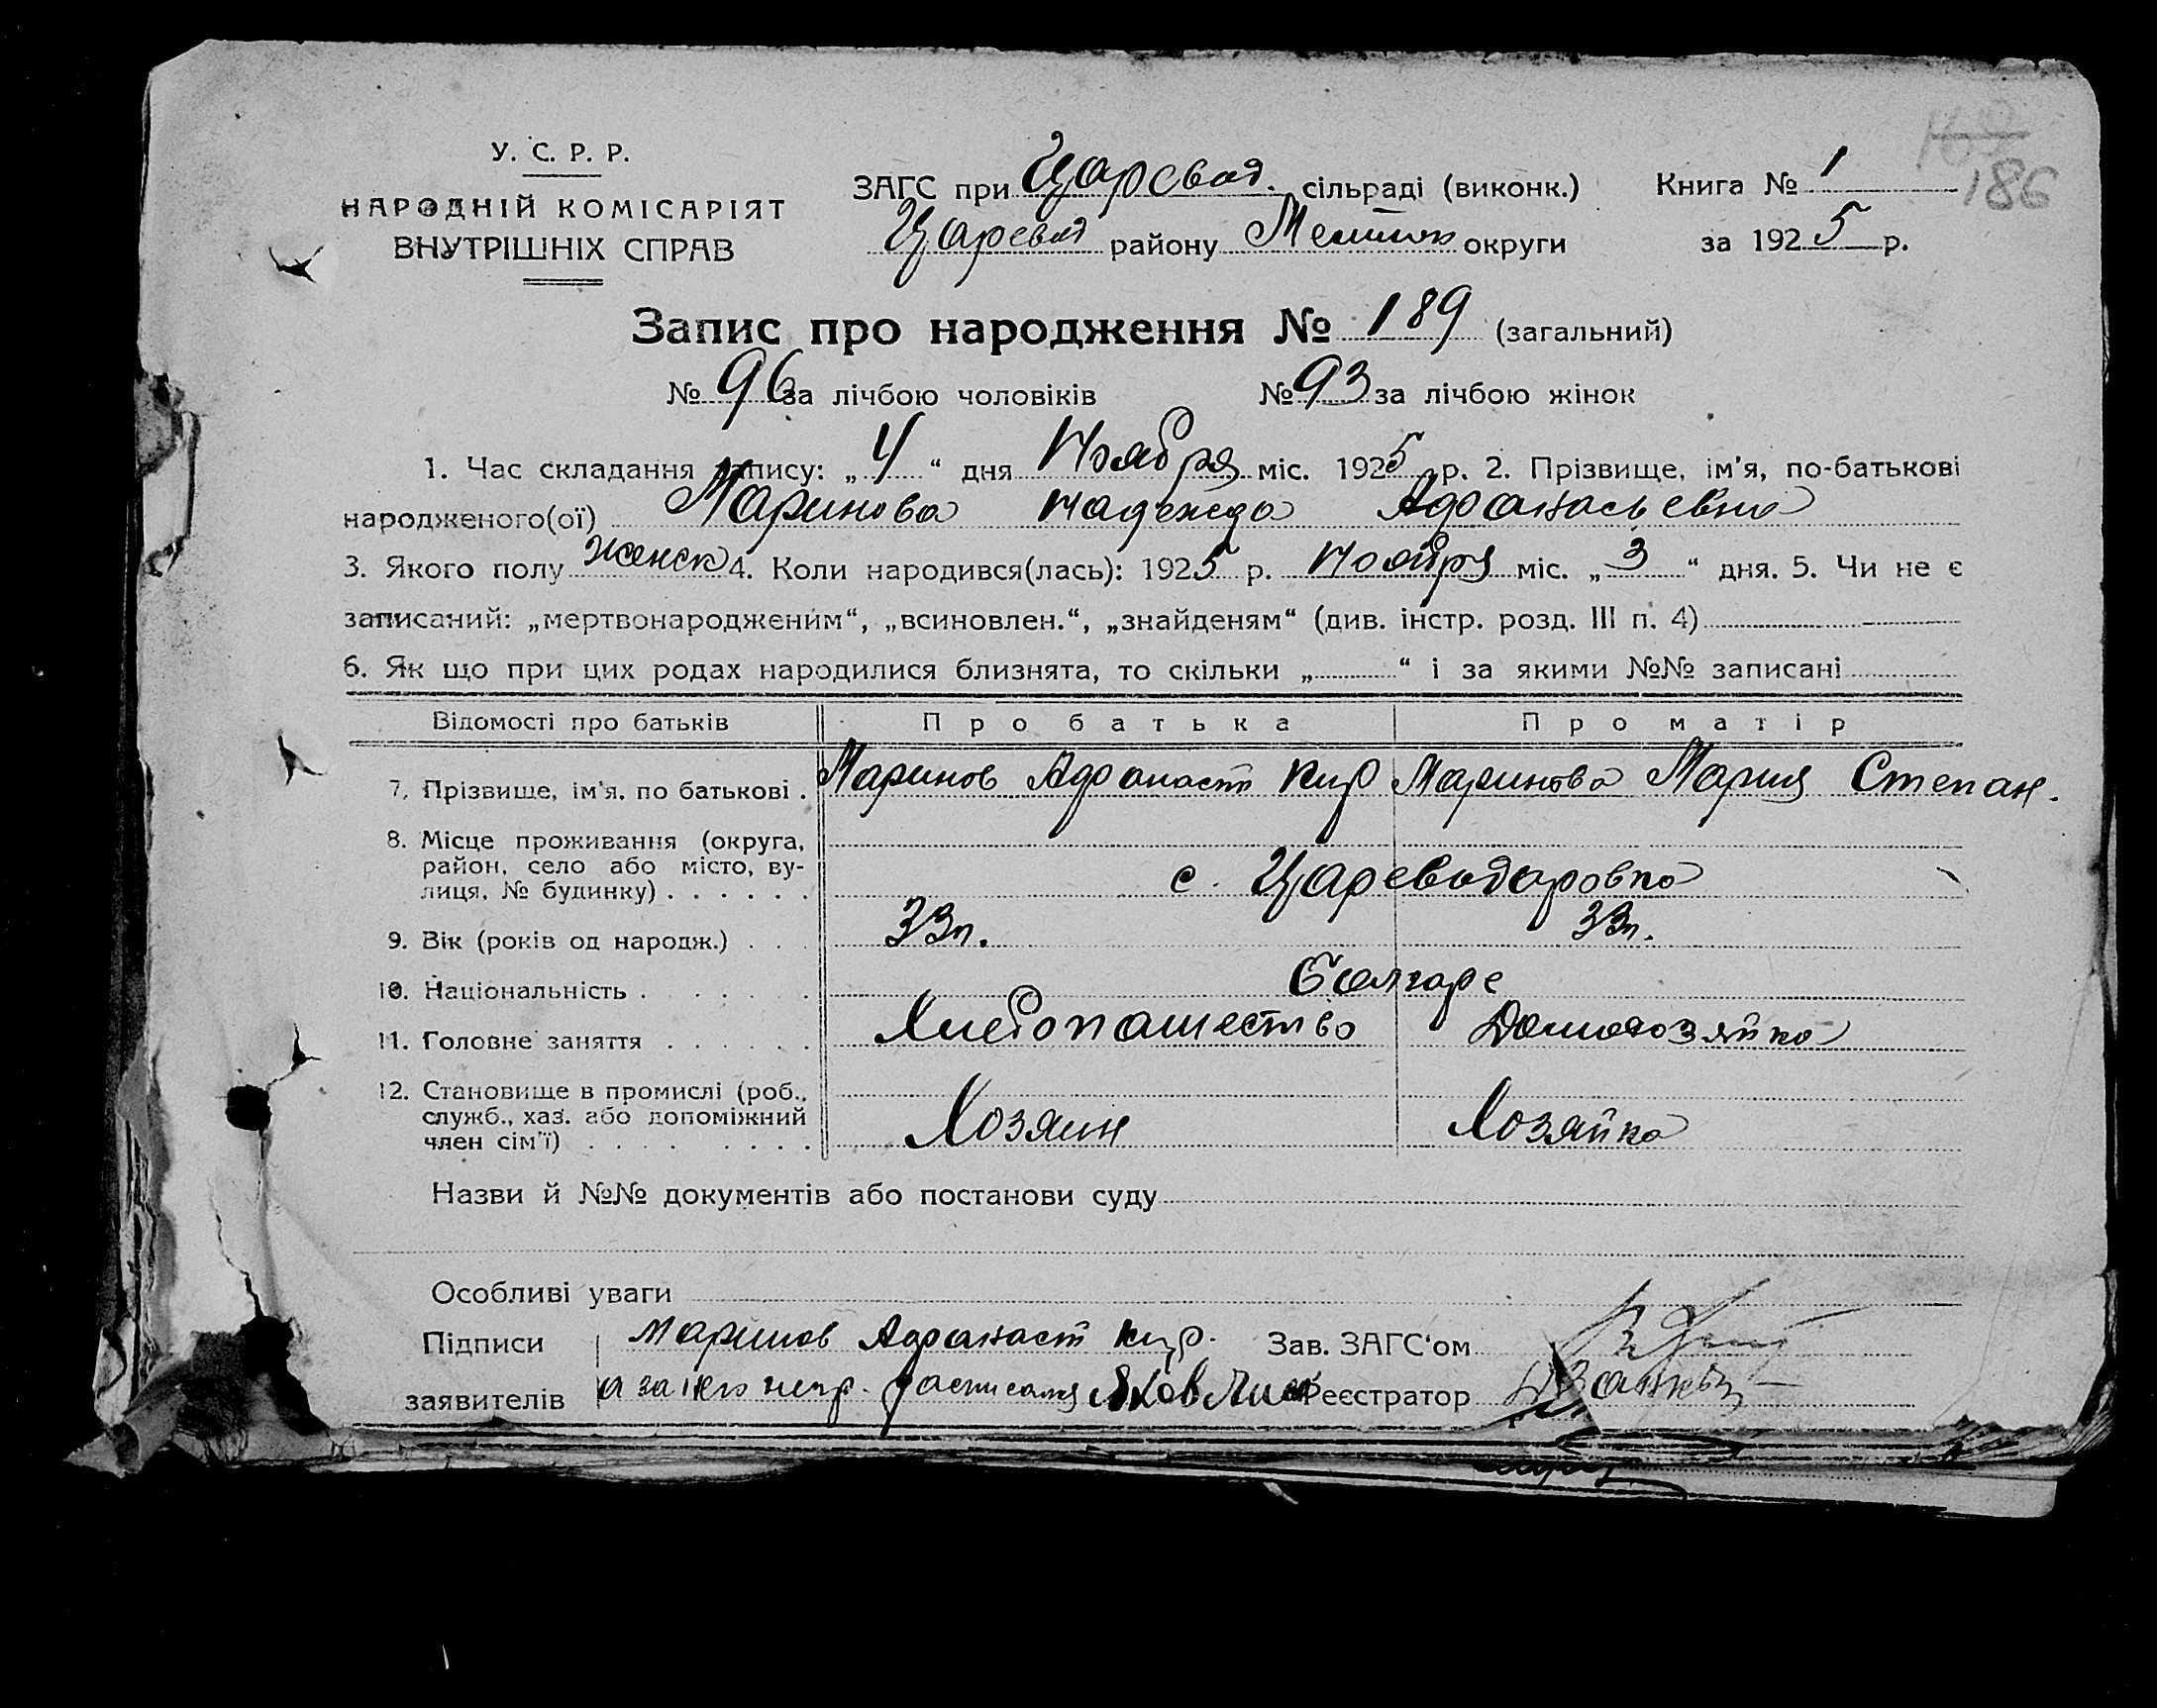 169
186
У. С. Р. Р.
НАРОДНІЙ КОМІСАРІЯТ
ВНУТРІШНІХ СПРАВ
ЗАГС при Царевод. сільраді (виконк.) Книга № 1
Царевод району Мелит округи за 1925 р.
Запис про народження № 189 (загальний)
№ 96 за лічбою чоловіків № 93 за лічбою жінок
1. Час складання запису: „4“ дня Ноября міс. 1925 р. 2. Прізвище, ім'я, по-батькові
народженого(ої) Маринова Надежда Афанасьевна
3. Якого полу женск 4. Коли народився(лась): 1925 р. Ноября міс. „3“ дня. 5. Чи не є
записаний: „мертвонародженим“, „всиновлен.“, „знайденям“ (див. інстр. розд. III п. 4)
6. Як що при цих родах народилися близнята, то скільки „ “ і за якими №№ записані
Відомості про батьків Про батька Про матір
7. Прізвище, ім'я, по батькові . Маринов Афанасий Кир Маринова Мария Степан.
8. Місце проживання (округа,
район, село або місто, ву-
лиця, № будинку) . . . . . . с. Цареводаровка
9. Вік (років од народж.) . . . 33л. 33л.
10. Національність . . . . . . Болгаре
11. Головне заняття . . . . . . Хлебопашество Домохозяйка
12. Становище в промислі (роб.,
служб., хаз. або допоміжний
член сім'ї) . . . . . . . . Хозяин Хозяйка
Назви й №№ документів або постанови суду
Особливі уваги
Підписи Маринов Афанасий Кир. Зав. ЗАГС'ом
заявителів а за него негр. расписался Яковлиев Реєстратор